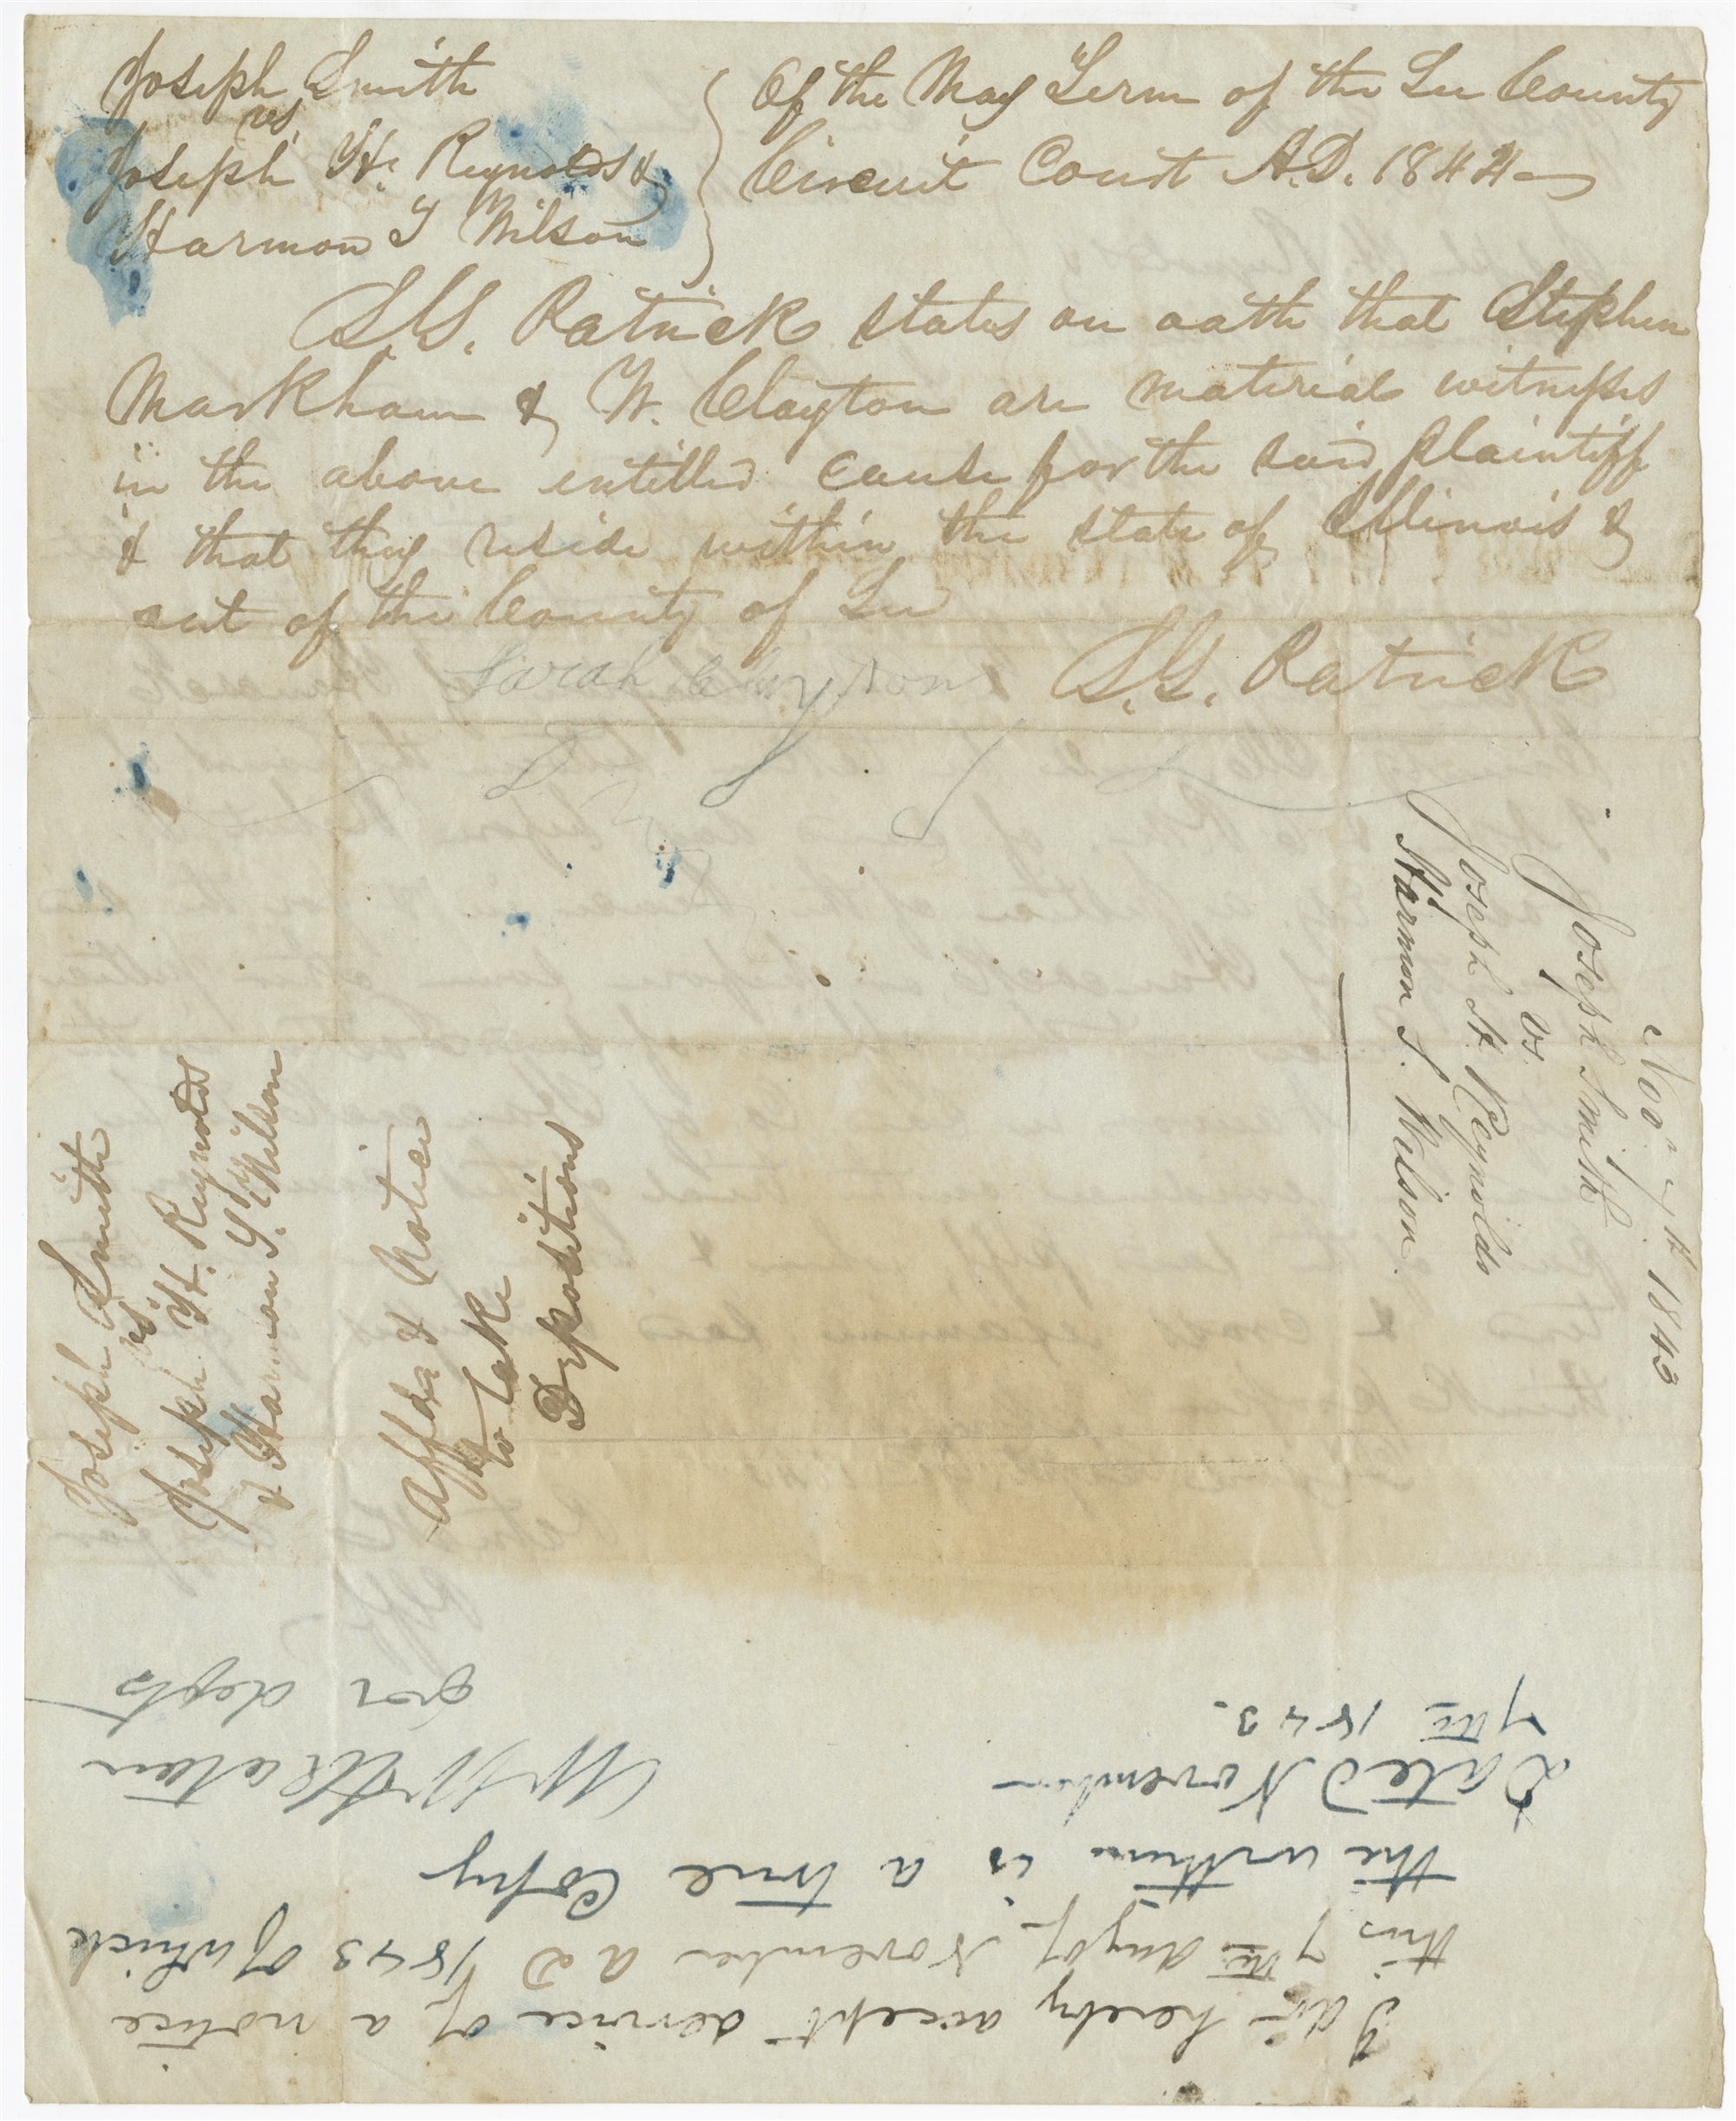 Joseph Smith
vs
Joseph H. Reynolds &
Harmon T Wilson
Of the May Term of the Lee County
Circuit Court A.D. 1844
S.G. Patrick states on oath that Stephen
Markham & W. Clayton are material witnesses
in the above entitled cause for the said plaintiff
& that they reside within the state of Illinois &
out of the County of Lee
S.G. Patrick
Sarah
Nov. 7th 1843
Joseph Smith
vs.
Joseph H. Reynolds
&
Harmon T. Wilson
Joseph Smith
vs
Joseph H. Reynolds
& Harmon T. Wilson
Affda & Notice
to take
Depositions
I do hereby accept service of a notice
this 7th day of November A D 1843 of which
the within is a true Copy
Dated November
7th 1843.
for defts